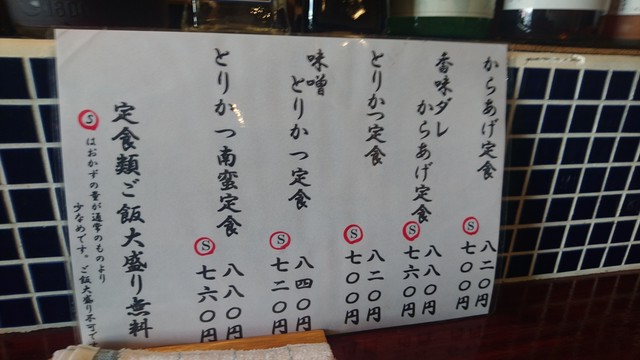 からあげ定食
八二〇円
Ⓢ七〇〇円
香味ダレ
からあげ定食
八八〇円
Ⓢ七六〇円
とりかつ定食
八二〇円
Ⓢ七〇〇円
味噌
とりかつ定食
八四〇円
Ⓢ七二〇円
とりかつ南蛮定食
八八〇円
Ⓢ七六〇円
定食類ご飯大盛り無料
Ⓢはおかずの量が通常のものより
少なめです。ご飯大盛り不可で